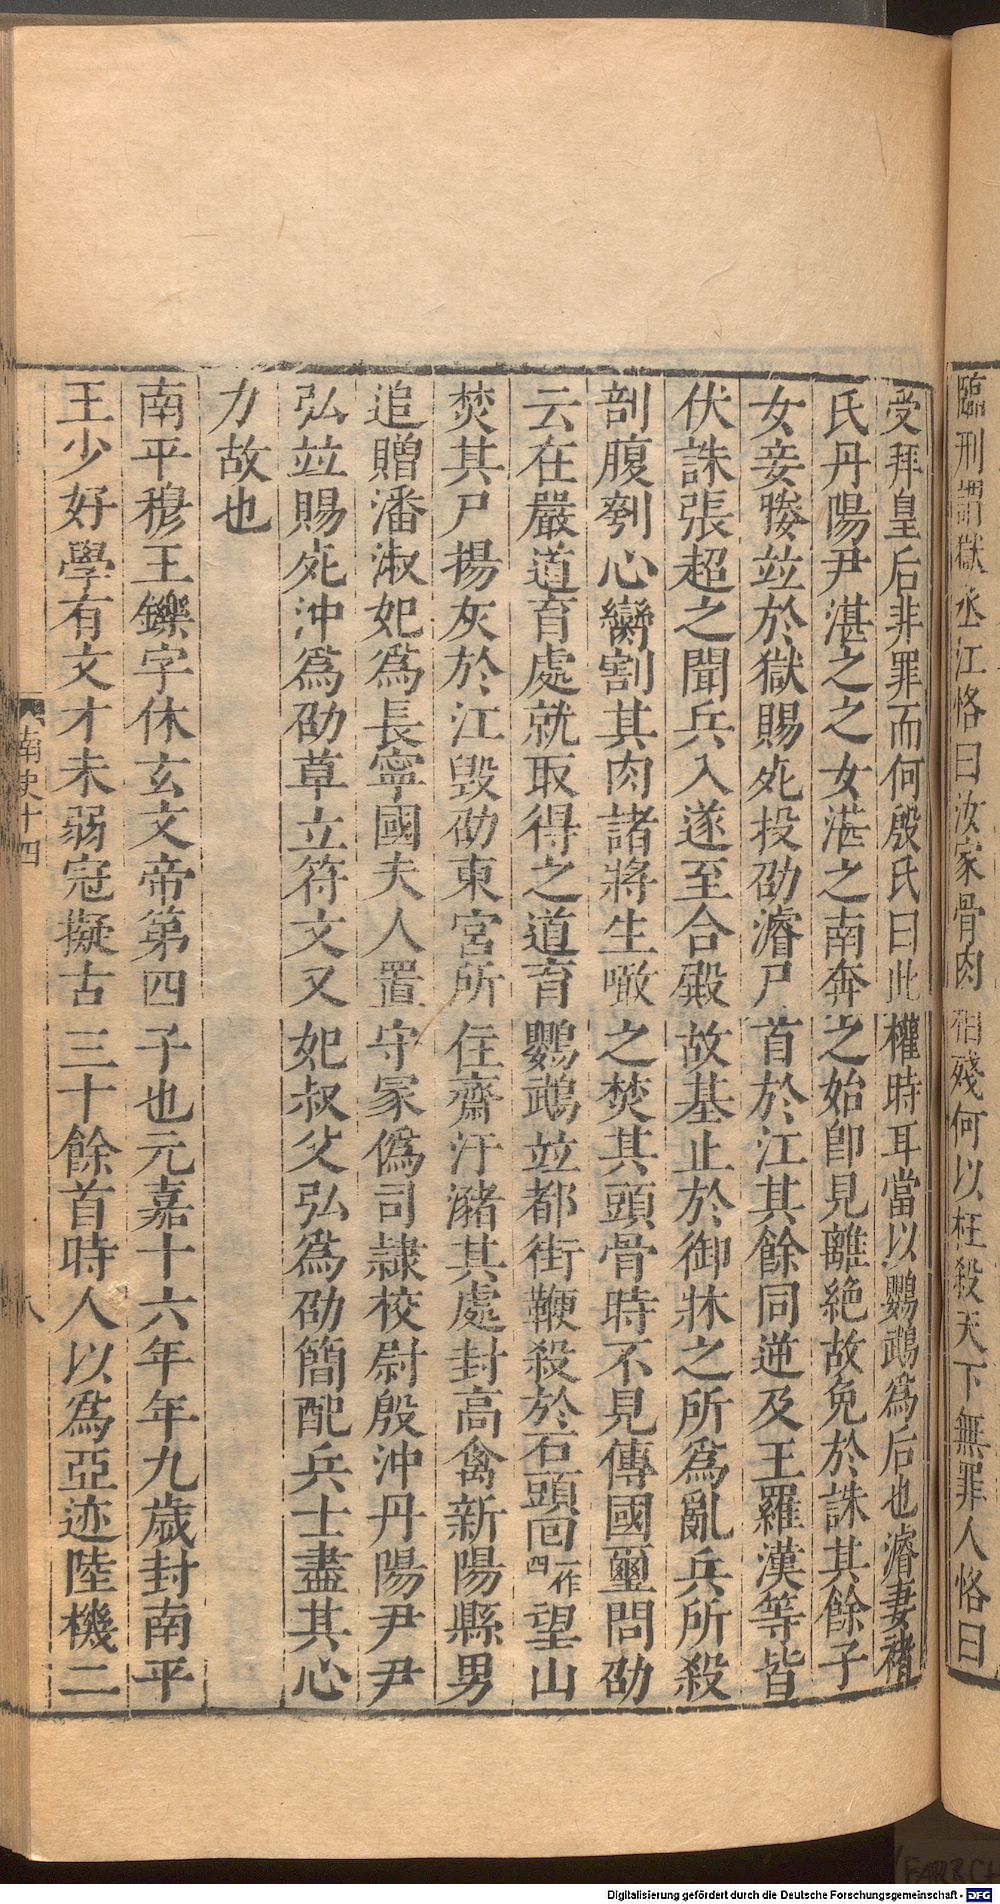 臨刑謂獄丞江恪曰汝家骨肉相殘何以枉殺天下無罪人恪曰
受拜皇后非罪而何殷氏曰此權時耳當以鸚鵡爲后也濬妻褚
氏丹陽尹湛之之女湛之南奔之始卽見離絶故免於誅其餘子
女妾媵竝於獄賜死投劭濬尸首於江其餘同逆及王羅漢等皆
伏誅張超之聞兵入遂至合殿故基止於御牀之所爲亂兵所殺
剖腹刳心臠割其肉諸將生噉之焚其頭骨時不見傳國璽問劭
云在嚴道育處就取得之道育鸚鵡竝都街鞭殺於石頭囘一作四望山
焚其尸揚灰於江毀劭東宮所住齋汙瀦其處封高禽新陽縣男
追贈潘淑妃爲長寧國夫人置守冢僞司隷校尉殷沖丹陽尹尹
弘竝賜死沖爲劭草立符文又妃叔父弘爲劭簡配兵士盡其心
力故也
南平穆王鑠字休玄文帝第四子也元嘉十六年年九歲封南平
王少好學有文才未弱冠擬古三十餘首時人以爲亞迹陸機二
南史十四
八
Digitalisierung gefördert durch die Deutsche Forschungsgemeinschaft - DFG